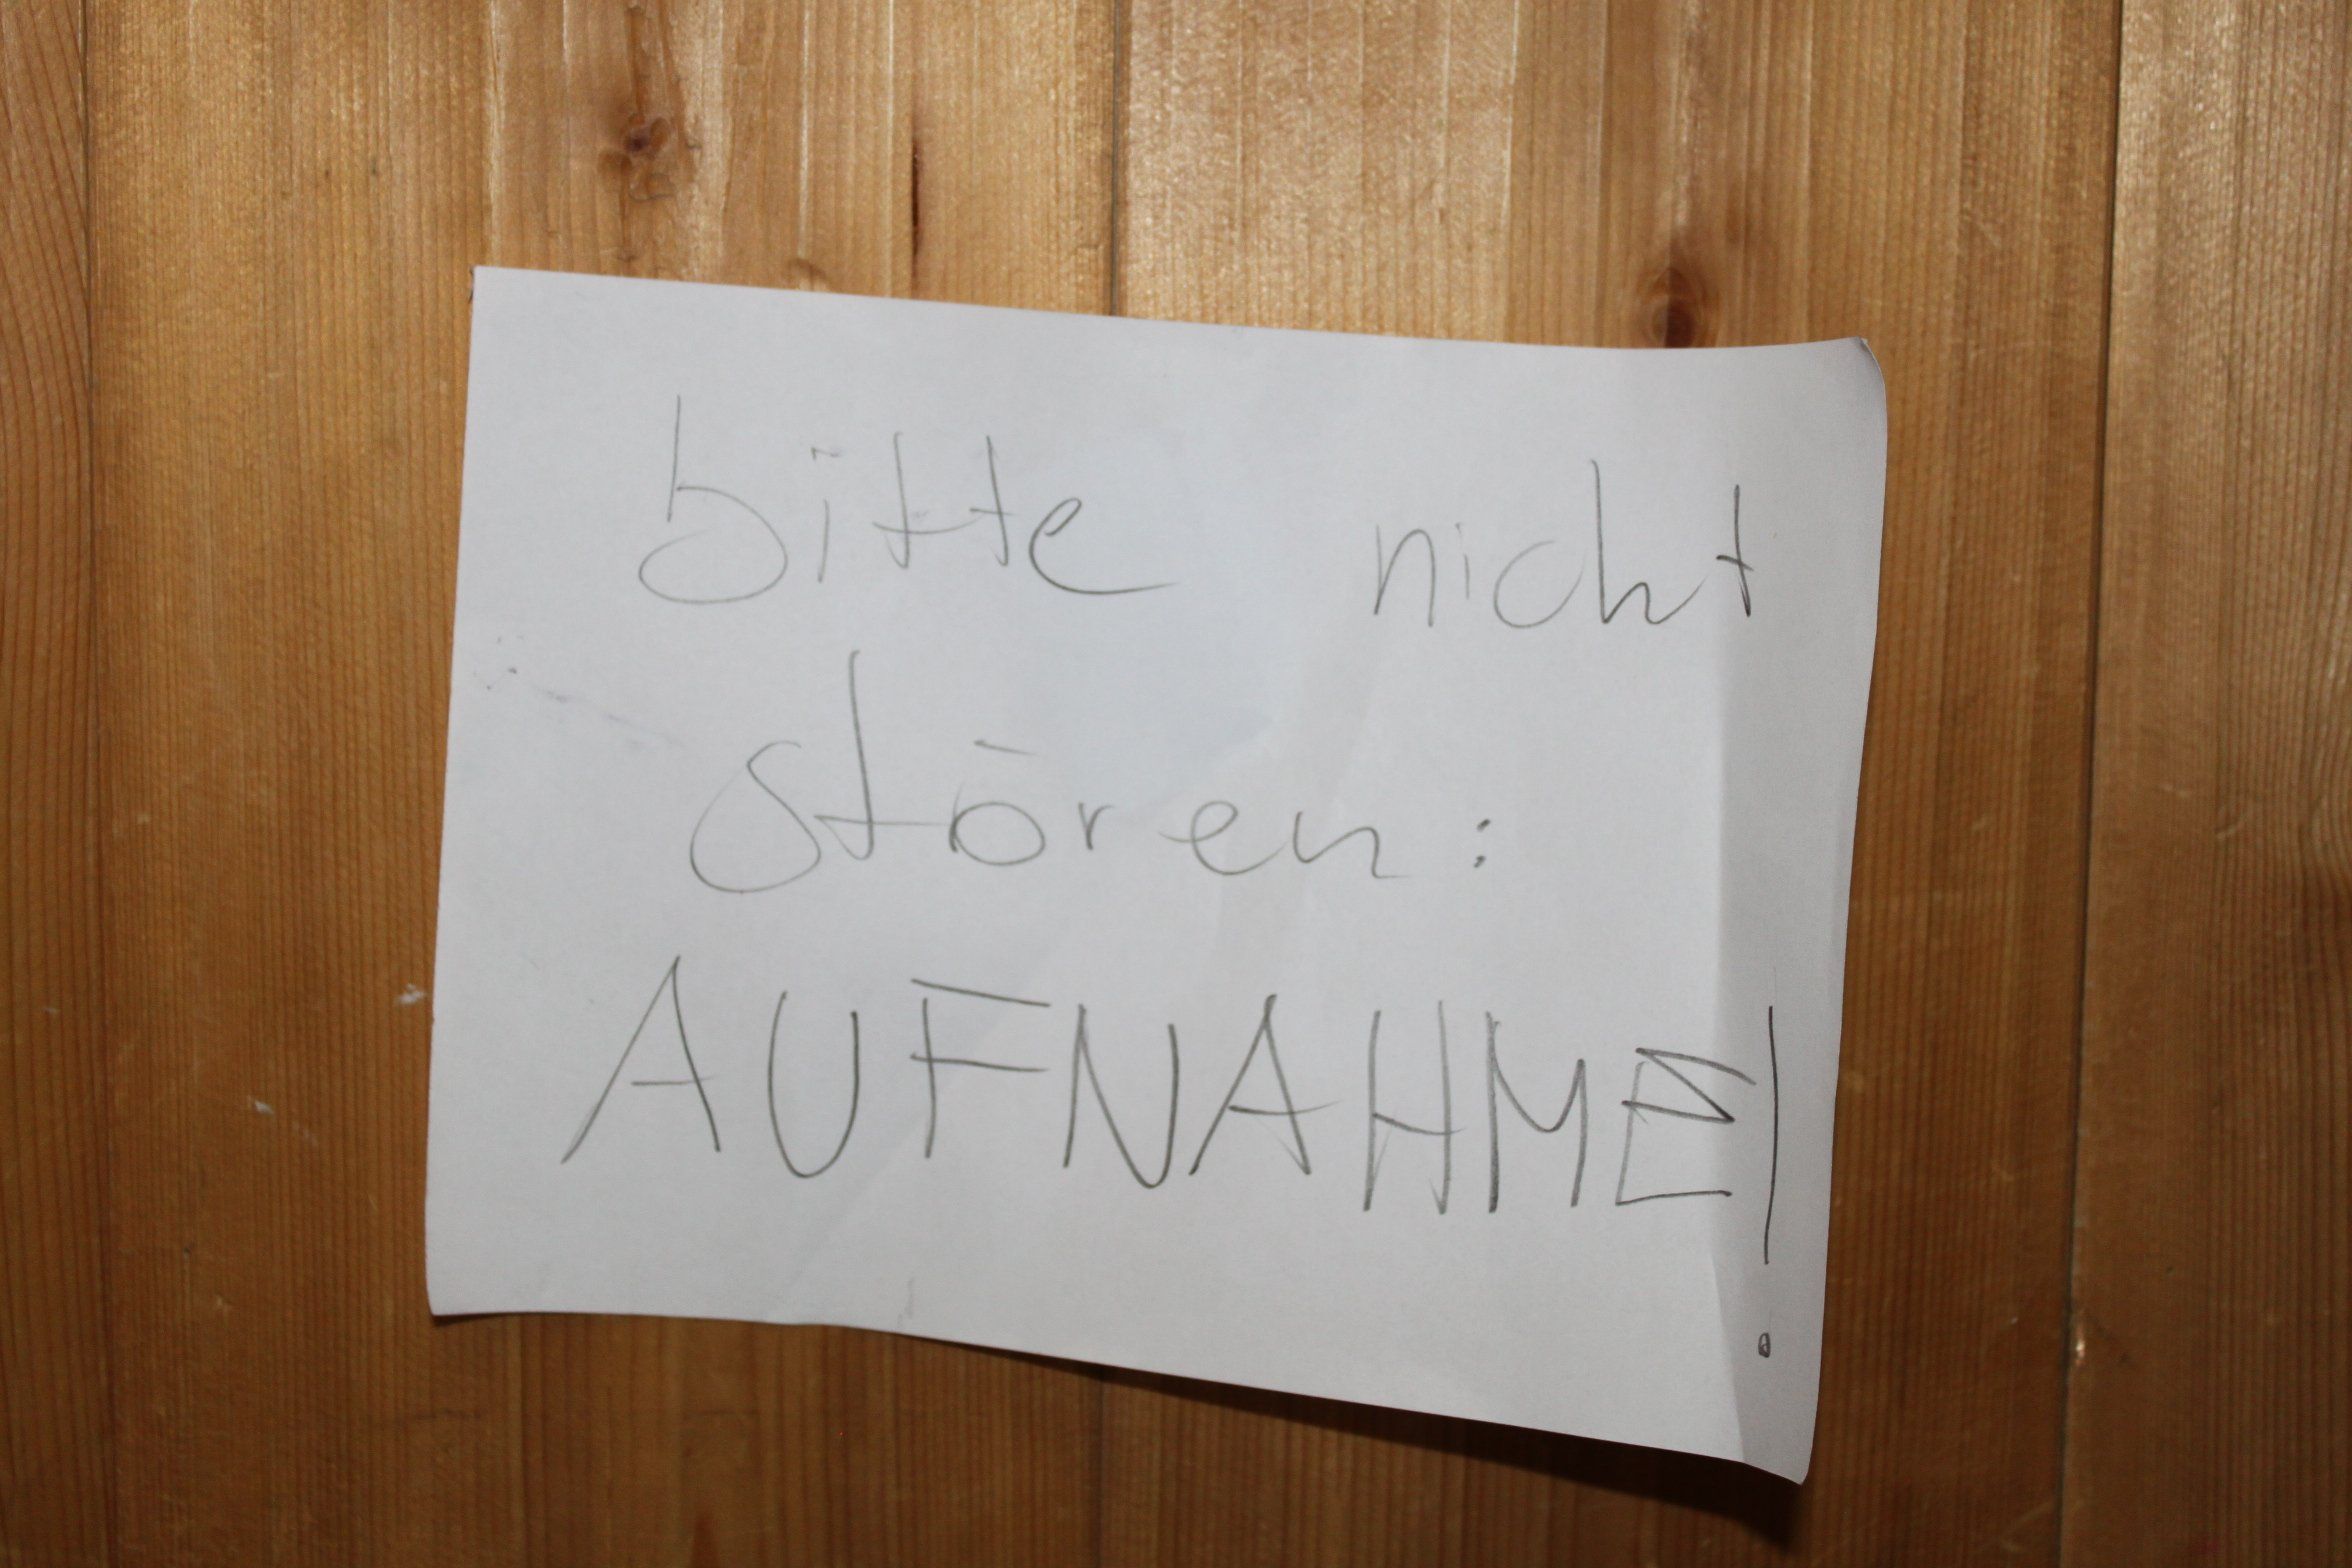 bitte nicht
stören:
AUFNAHME!